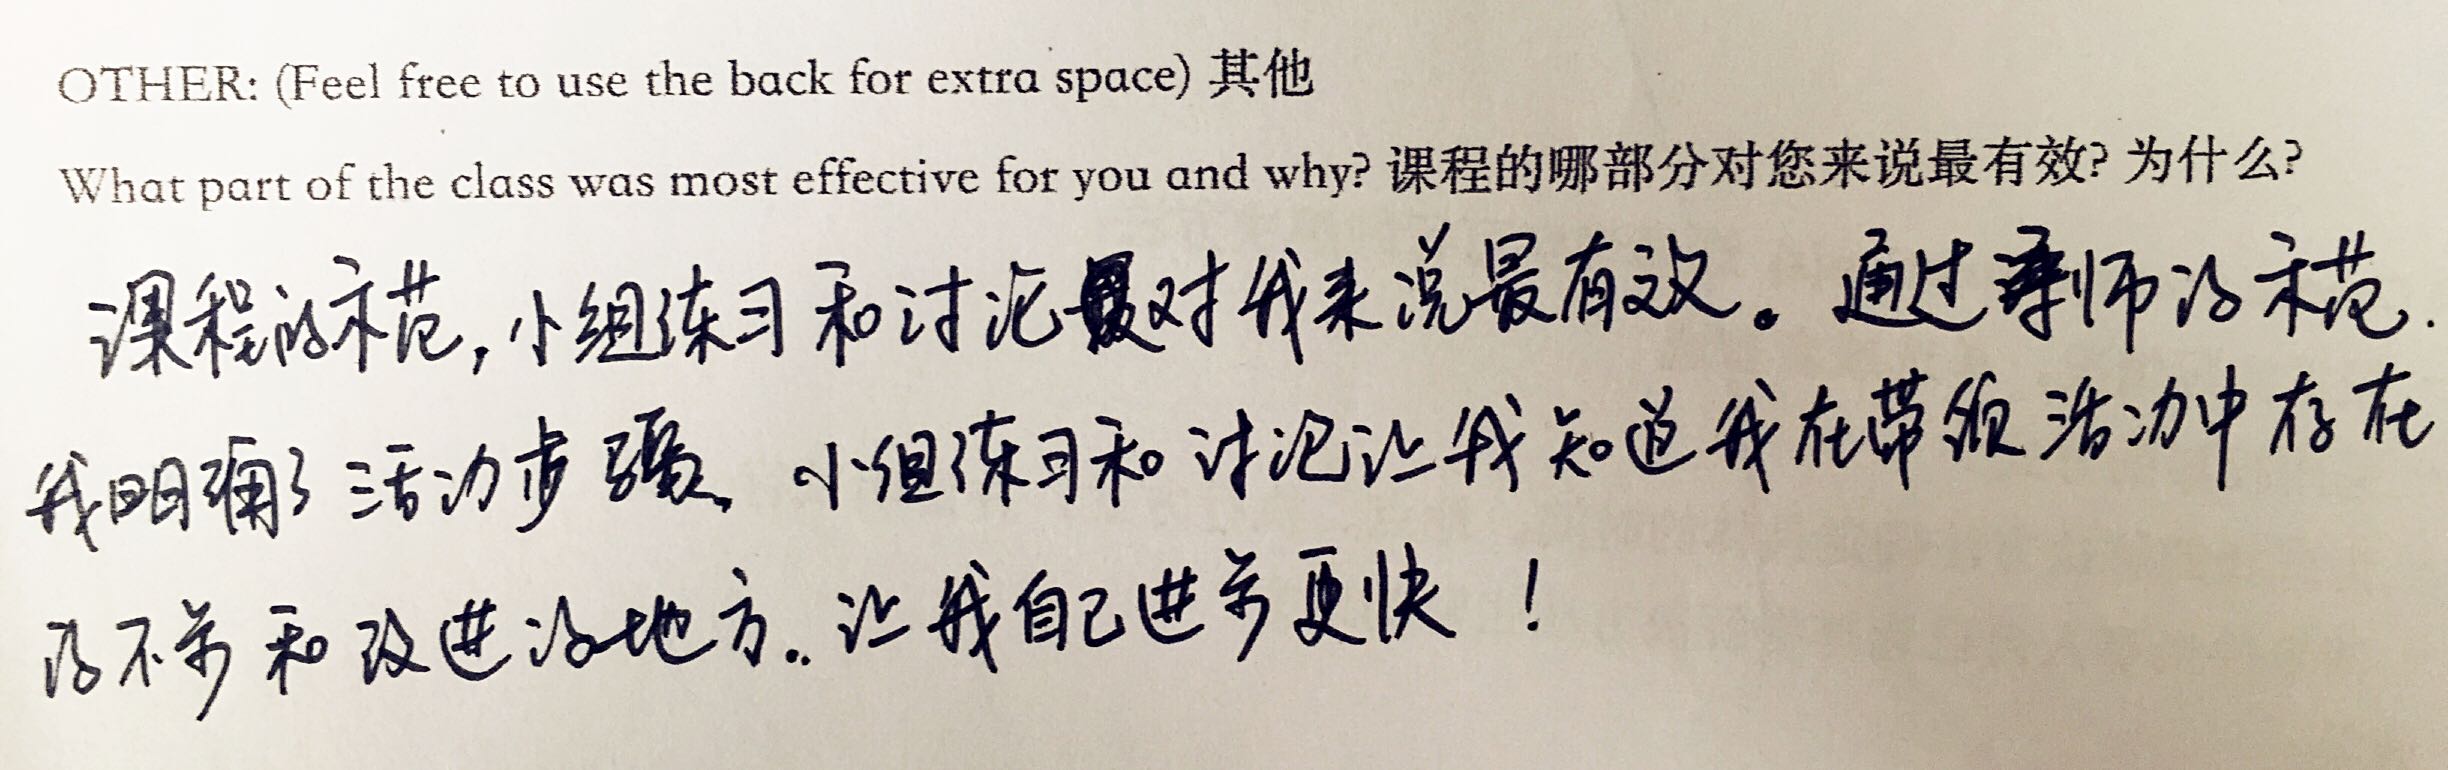 OTHER: (Feel free to use the back for extra space) 其他
What part of the class was most effective for you and why? 课程的哪部分对您来说最有效? 为什么?
课程的示范,小组练习和讨论对我来说最有效。通过导师的示范.
我明确了活动步骤、小组练习和讨论让我知道我在带领活动中存在
的不步和改进的地方..让我自己进步更快!